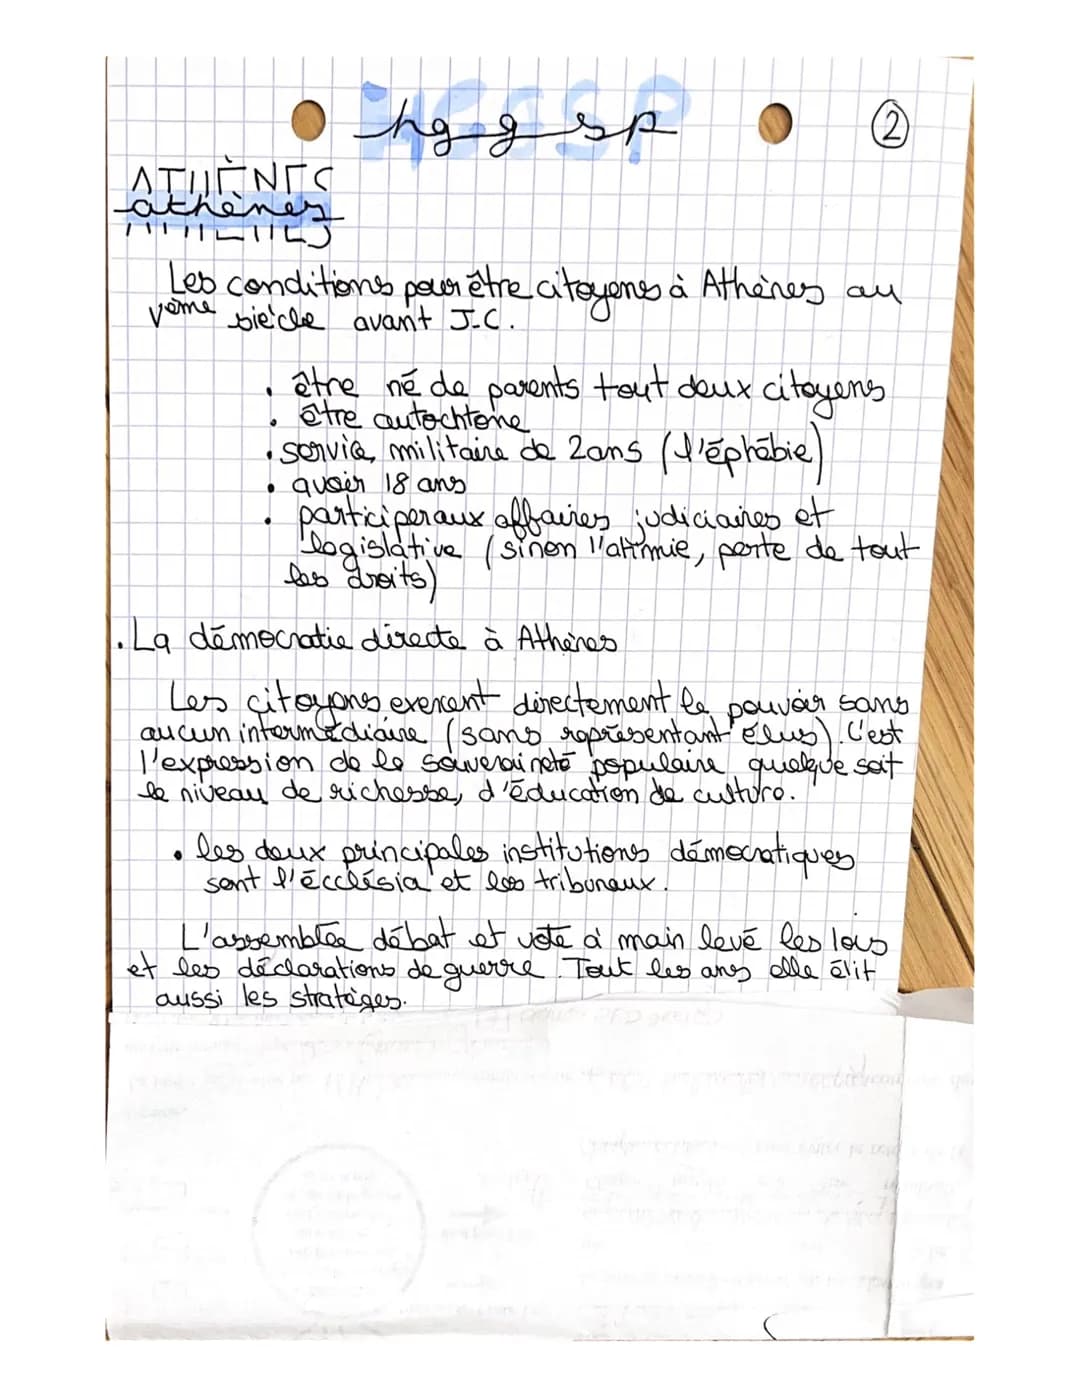 HGGSP
hggsp
2
ATHÈNES
athènes
Les conditions pour être citoyens à Athènes au
Vème siècle avant J.C.
• être né de parents tout deux citoyens
• être autochtone
• service militaire de 2ans (l'éphébie)
• avoir 18 ans
• participer aux affaires judiciaires et
législative (sinon l'atimie, perte de tout
les droits)
• La démocratie directe à Athènes
Les citoyens exercent directement le pouvoir sans
aucun intermédiaire (sans représentant élus). C'est
l'expression de la souveraineté populaire quelque soit
le niveau de richesse, d'éducation de culture.
• les deux principales institutions démocratiques
sont l'écclésia et les tribunaux.
L'assemblée débat et vote à main levé les lois
et les déclarations de guerre. Tout les ans elle élit
aussi les stratèges.